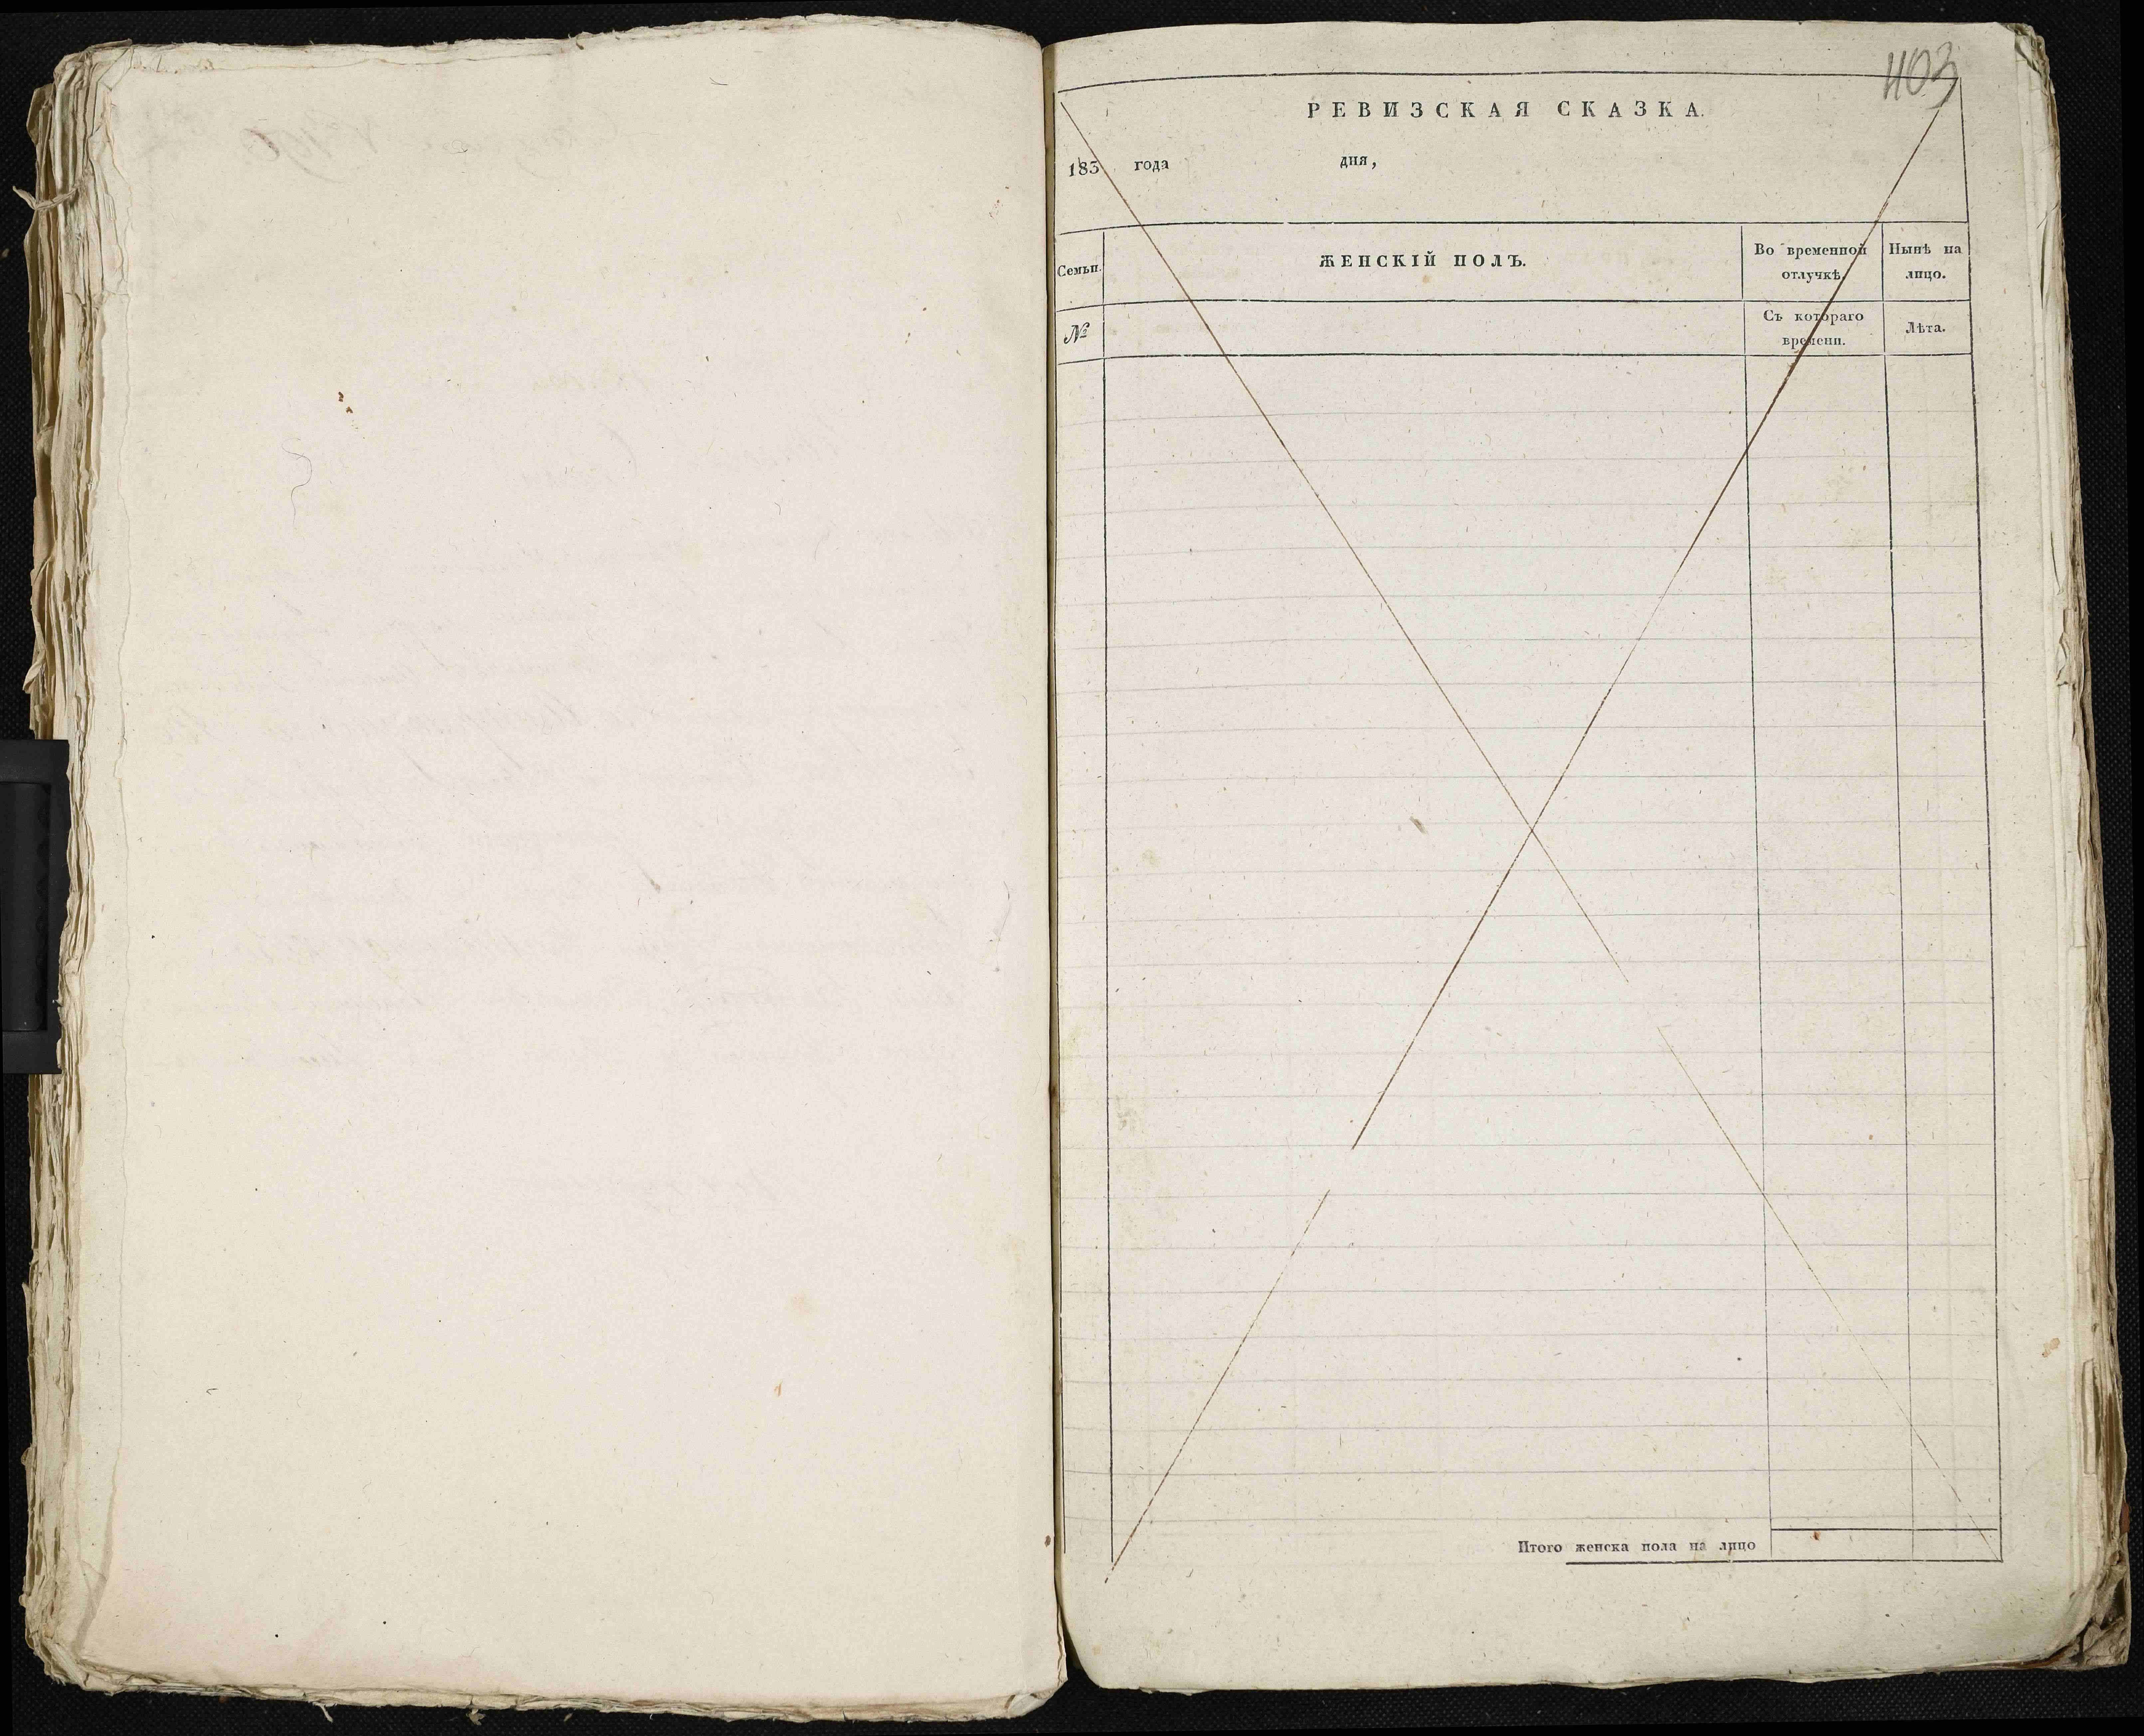 403
РЕВИЗСКАЯ СКАЗКА.
183 года дня,
Семьи. ЖЕНСКІЙ ПОЛЪ. Во временной отлучкѣ. Нынѣ на лицо.
№ Съ котораго времени. Лѣта.
Итого женска пола на лицо